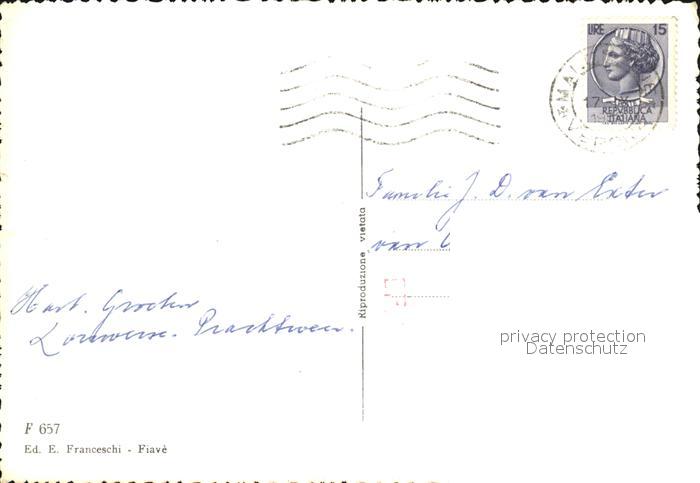 LIRE 15
REPVBBLICA
ITALIANA
Familie J. D. van Exter
van
Riproduzione vietata
Hart. Groeten
Louwerse. Prachtweer.
privacy protection
Datenschutz
F 657
Ed. E. Franceschi - Fiavè